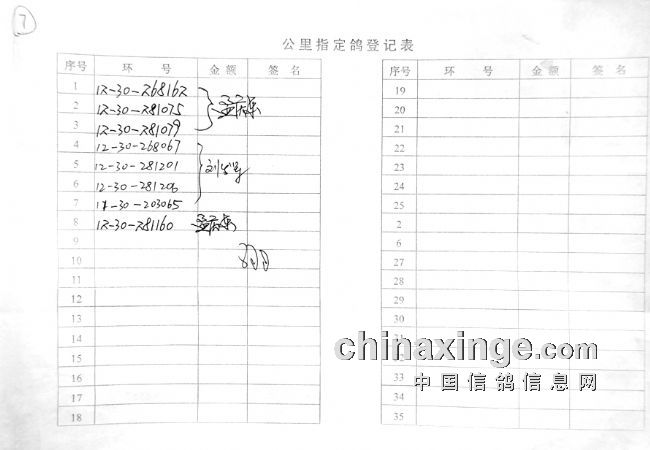 7
公里指定鸽登记表
序号 环 号 金 额 签 名
1 12-30-268162
2 12-30-281075
3 12-30-281079
4 12-30-268067
5 12-30-281201
6 12-30-281206
7 11-30-203065
8 12-30-281160
9
10
11
12
13
14
15
16
17
18
序号 环 号 金 额 签 名
19
20
21
22
23
24
25
2
6
27
28
29
30
33
34
35
chinaxinge.com
中国信鸽信息网